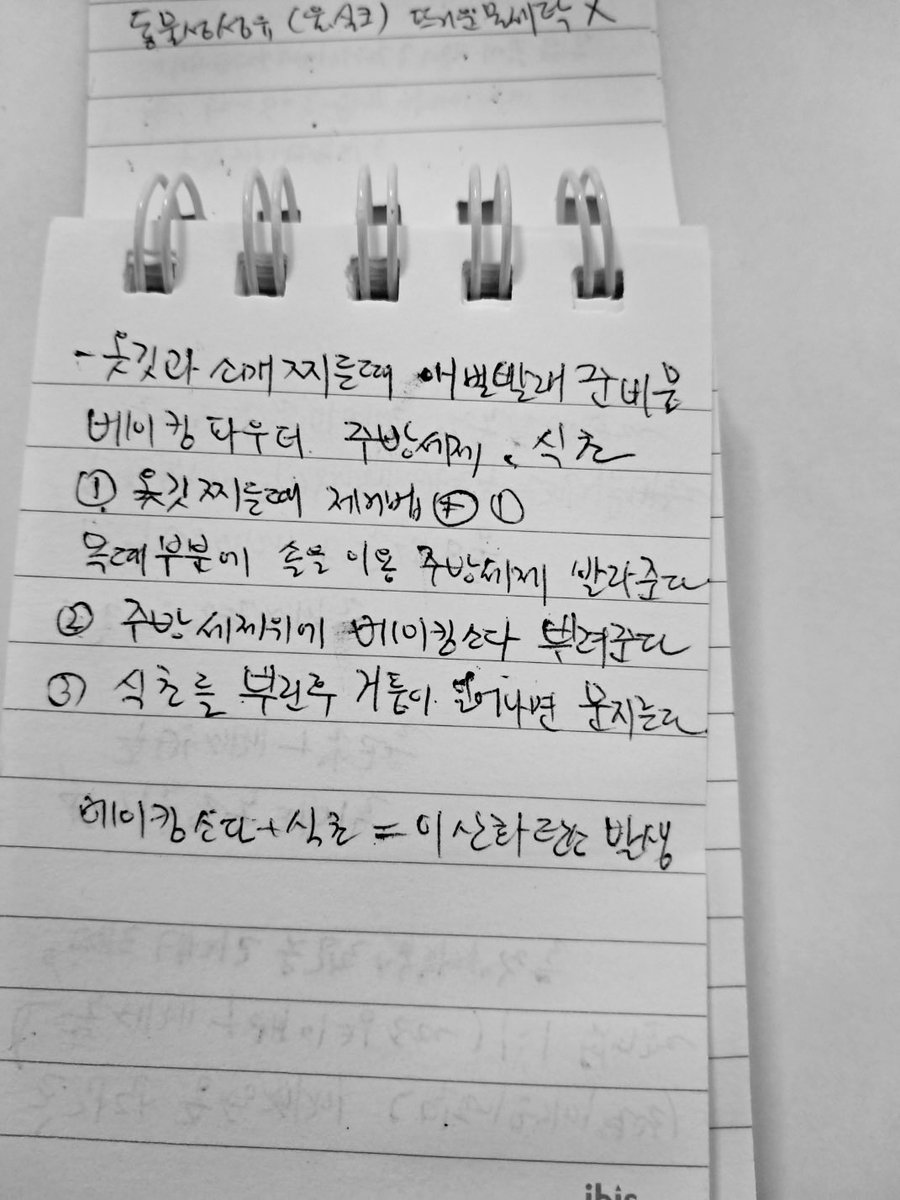 동물성섬유 (울.실크) 뜨거운물세탁 X
- 옷깃과 소매 찌든때 애벌빨래 준비물
베이킹파우더. 주방세제. 식초
① 옷깃찌든때 제거법 ①
목때부분에 솔을 이용 주방세제 발라준다
② 주방세제위에 베이킹소다 뿌려준다
③ 식초를 뿌린후 거품이 일어나면 문지른다
베이킹소다+식초 = 이산화탄소 발생
ibis